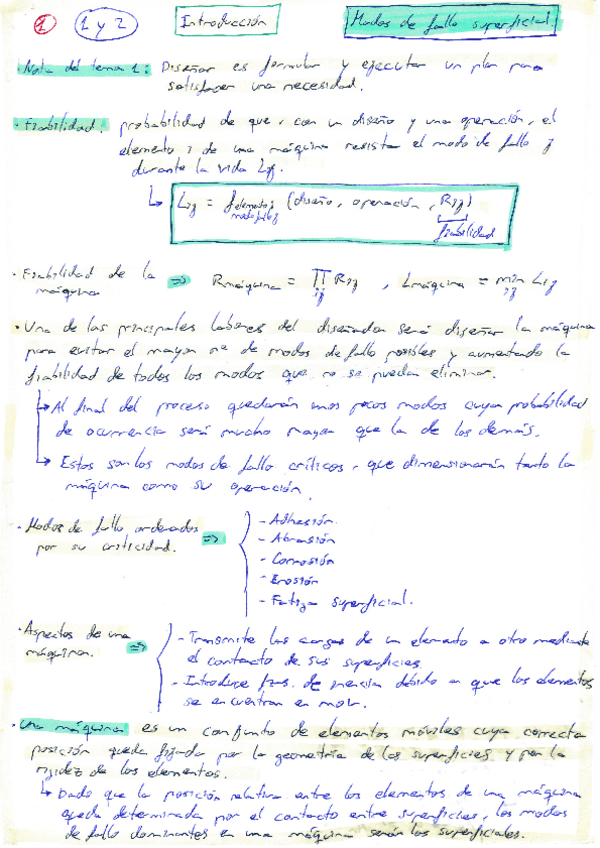 1 1 y 2 Introducción Modos de fallo superficial
· Nota del tema 1: Diseñar es formular y ejecutar un plan para
satisfacer una necesidad.
· Fiabilidad: probabilidad de que, con un diseño y una operación, el
elemento i de una máquina resista el modo de fallo j
durante la vida Lij.
↳ Lij = f elemento i modo fallo j (diseño, operación, Rij)
fiabilidad
· Fiabilidad de la máquina ⇒ Rmáquina = ∏ij Rij , Lmáquina = min ij Lij
· Una de las principales labores del diseñador será diseñar la máquina
para evitar el mayor nº de modos de fallo posibles y aumentando la
fiabilidad de todos los modos que no se puedan eliminar.
↳ Al final del proceso quedarán unos pocos modos cuya probabilidad
de ocurrencia será mucho mayor que la de los demás.
↳ Estos son los modos de fallo críticos, que dimensionarán tanto la
máquina como su operación.
· Modos de fallo ordenados
por su criticidad. ⇒
- Adhesión.
- Abrasión
- Corrosión
- Erosión
- Fatiga superficial.
· Aspectos de una
máquina. ⇒
- Transmite las cargas de un elemento a otro mediante
el contacto de sus superficies.
- Introduce fzas. de inercia debido a que los elementos
se encuentran en mov.
· Una máquina es un conjunto de elementos móviles cuya correcta
posición queda fijada por la geometría de las superficies y por la
rigidez de los elementos.
↳ Dado que la posición relativa entre los elementos de una máquina
queda determinada por el contacto entre superficies, los modos
de fallo dominantes en una máquina serán los superficiales.